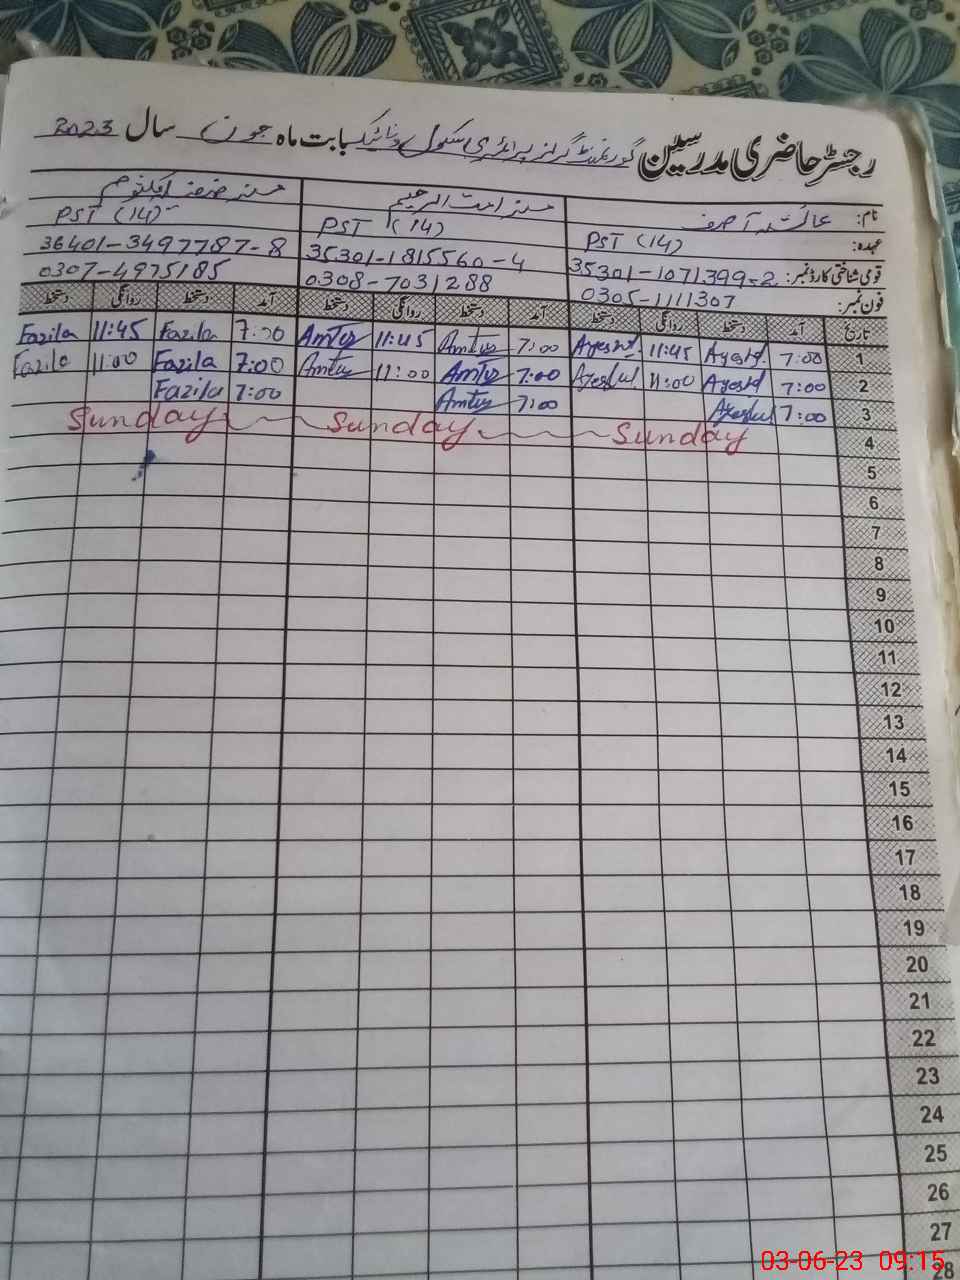 رجسٹر حاضری مدرسین گورنمنٹ گرلز پرائمری سکول بابت ماہ جون سال 2023
نام: عائشہ آصف مسز امت الرحیم مسز
عہدہ: PST (14) PST (14) PST (14)
قومی شناختی کارڈ نمبر: 35301-1071399-2 35301-1815560-4 36401-3497787-8
فون نمبر: 0305-1111307 0308-7031288 0307-4975185
تاریخ آمد دستخط روانگی دستخط آمد دستخط روانگی دستخط آمد دستخط روانگی دستخط
1 7:00 Ayesha 11:45 Ayesha 7:00 Amtus 11:45 Amtus 7:00 Fazila 11:45 Fazila
2 7:00 Ayesha 11:00 Ayesha 7:00 Amtus 11:00 Amtus 7:00 Fazila 11:00 Fazila
3 7:00 Ayesha 7:00 Amtus 7:00 Fazila
4 Sunday Sunday Sunday
5
6
7
8
9
10
11
12
13
14
15
16
17
18
19
20
21
22
23
24
25
26
27
28
03-06-23 09:15